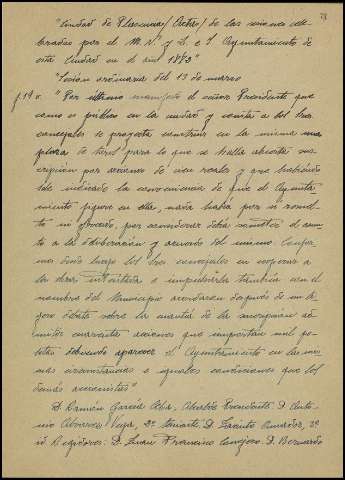 "Ciudad de Plasencia / Actas / de las sesiones cele-
bradas por el M. N. y L. e I. Ayuntamiento de
esta Ciudad en el año 1882"
"Sesion ordinaria del 15 de marzo
f. 19 v. "Por último manifestó el señor Presidente que
como es público en la ciudad y consta a los Sres.
concejales se proyecta construir en la misma una
plaza de toros para lo que se halla abierta sus-
cripción por acciones de cien reales y que habiendo-
sele indicado la conveniencia de que el Ayunta-
miento figure en ella, nada había por si
ofrecido, por considerar debía someter el asun-
to a la deliberación y acuerdo del mismo. Confor-
mes desde luego los Sres. concejales en cooperar a
la obra iniciada e impulsarla también con el
nombre del Municipio acordaron después de un li-
gero debate sobre la cuantía de la suscripción ad-
mitir cuarenta acciones que importan mil pe-
setas debiendo aparecer el Ayuntamiento en las mis-
mas circunstancias e iguales condiciones que los
demás accionistas"
D. Ramón García Alba, Alcalde Presidente D. Anto-
nio Alvarez Vega, 2º Teniente. D. Jacinto 2º
id Regidores: D. Juan Francisco D. Bernardo